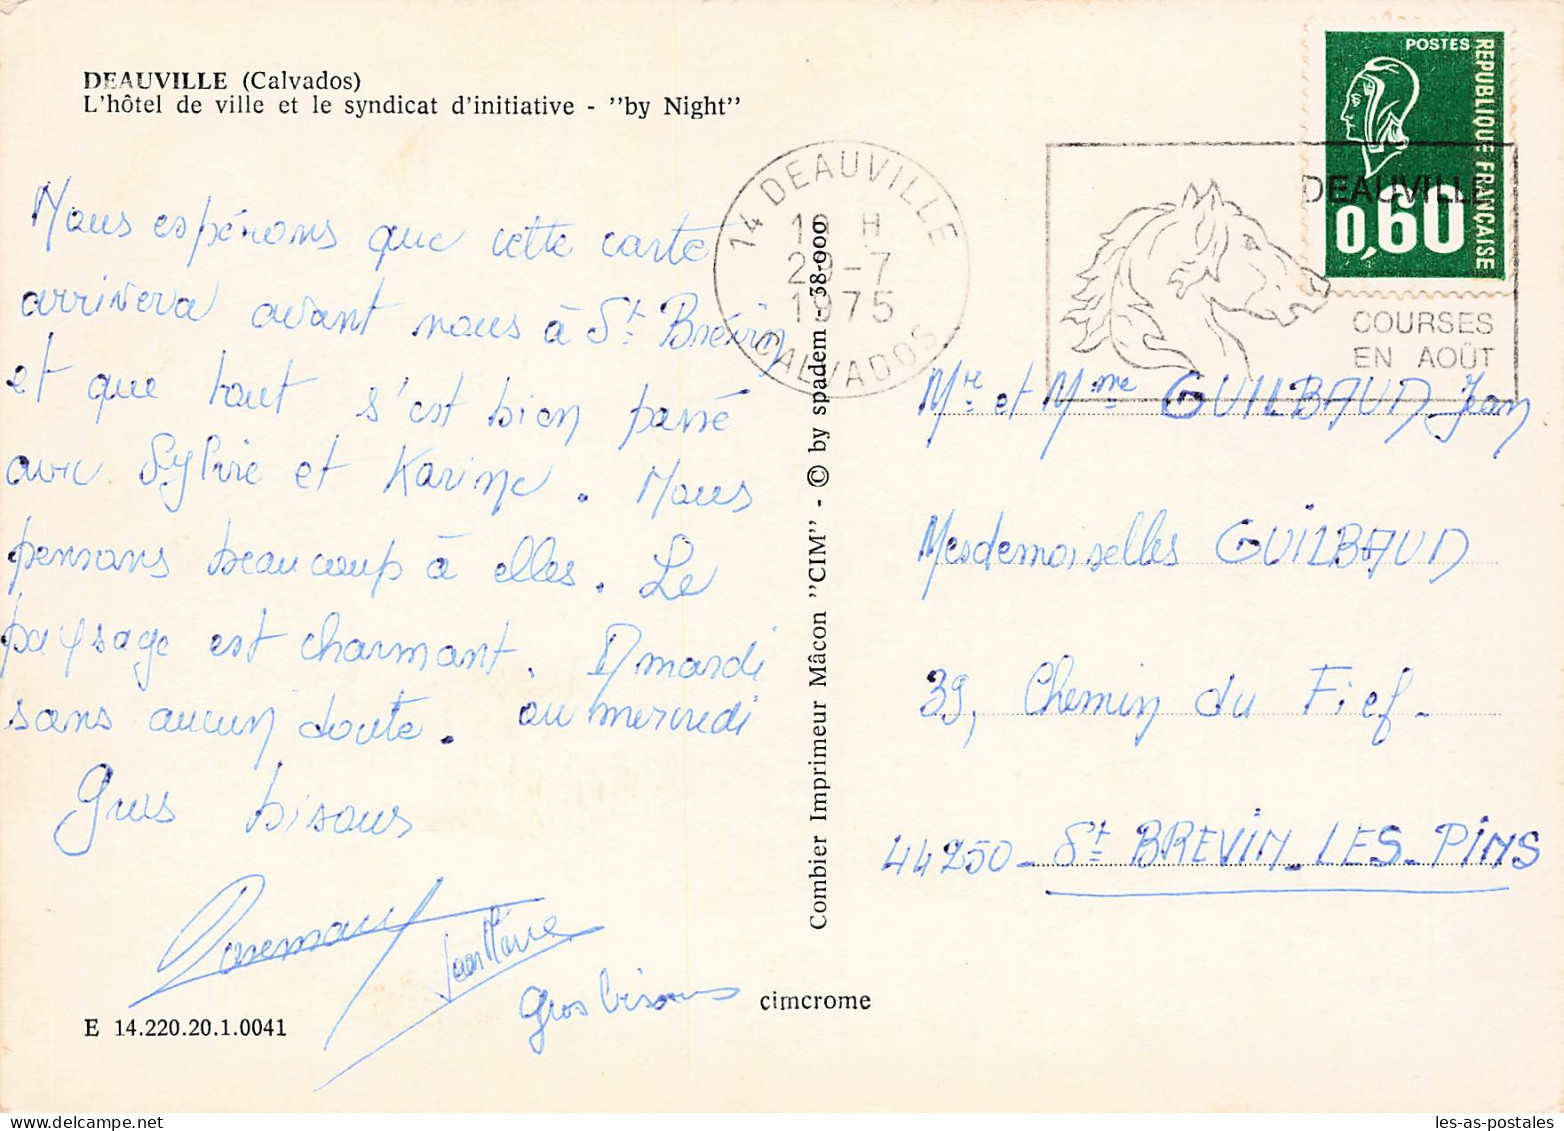 DEAUVILLE (Calvados)
L'hôtel de ville et le syndicat d'initiative - "by Night"
Nous espérons que cette carte
arrivera avant nous à St Brévin
et que tout s'est bien passé
avec Sylvie et Karine. Nous
pensons beaucoup à elles. Le
paysage est charmant. A mardi
sans aucun doute. ou mercredi
Gros bisous
Jean Marie
Gros bisous
E 14.220.20.1.0041
cimcrome
Combier Imprimeur Mâcon "CIM" - © by spadem - 38-000
14 DEAUVILLE
H
29-7
1975
CALVADOS
DEAUVILLE
COURSES
EN AOÛT
POSTES
REPUBLIQUE FRANÇAISE
0,60
Mr et Mme GUILBAUD Jean
Mesdemoiselles GUILBAUD
39, Chemin du Fief-
44250 - St BREVIN-LES-PINS
les-as-postales